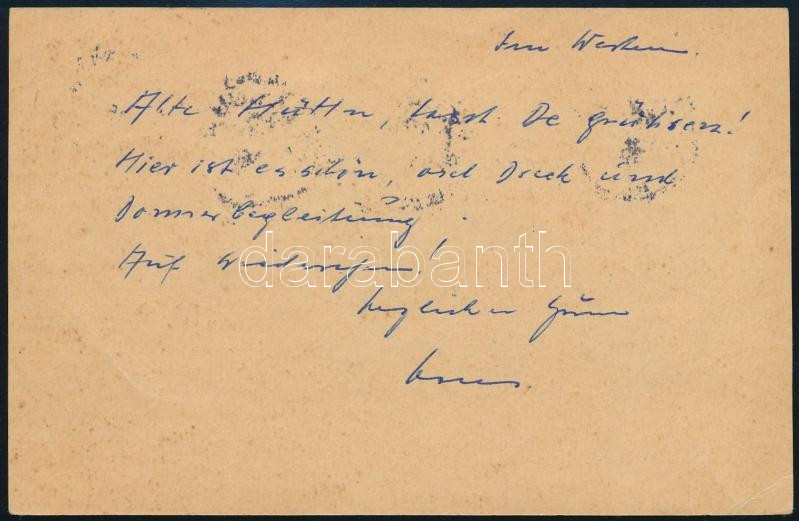 Im Westen.
Alte Hüttn, lasst De grühsen!
Hier ist es schön, viel Dreck und
Donnerbegleitung.
Auf Wiedersehen!
herzlicher Gruss
darabanth